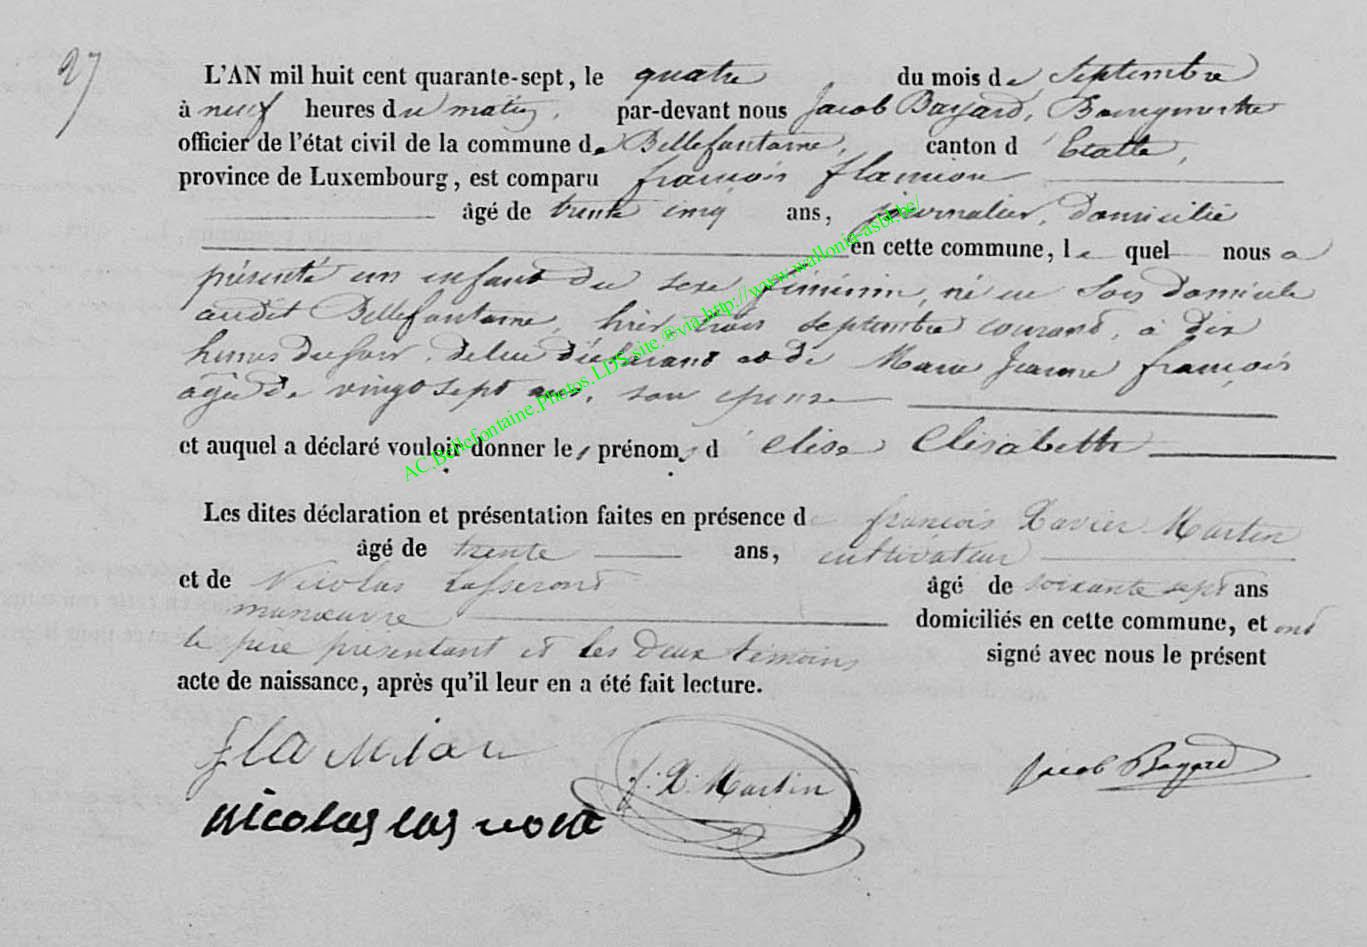 27
L'AN mil huit cent quarante-sept, le quatre du mois de Septembre
à neuf heures du matin, par-devant nous Jacob Bayard, Bourgmestre
officier de l'état civil de la commune de Bellefontaine, canton d'Etalle,
province de Luxembourg, est comparu françois flamion
âgé de trente cinq ans, journalier, domicilié
en cette commune, le quel nous a
présenté un enfant du sexe féminin, né en son domicile
audit Bellefontaine, hier trois septembre courant, à dix
heures du soir, de lui déclarant et de Marie Jeanne françois
âgée de vingt sept ans, son épouse
et auquel a déclaré vouloir donner les prénoms d'élise Elisabeth
Les dites déclaration et présentation faites en présence de françois Xavier Martin
âgé de trente ans, cultivateur
et de Nicolas âgé de soixante sept ans
manœuvre domiciliés en cette commune, et ont
le père présentant et les deux témoins signé avec nous le présent
acte de naissance, après qu'il leur en a été fait lecture.
flamion
f. X. Martin
Jacob Bayard
nicolas
AC.Bellefontaine.Photos.LDS.site.®via-http://www.wallonia-asbl.be/